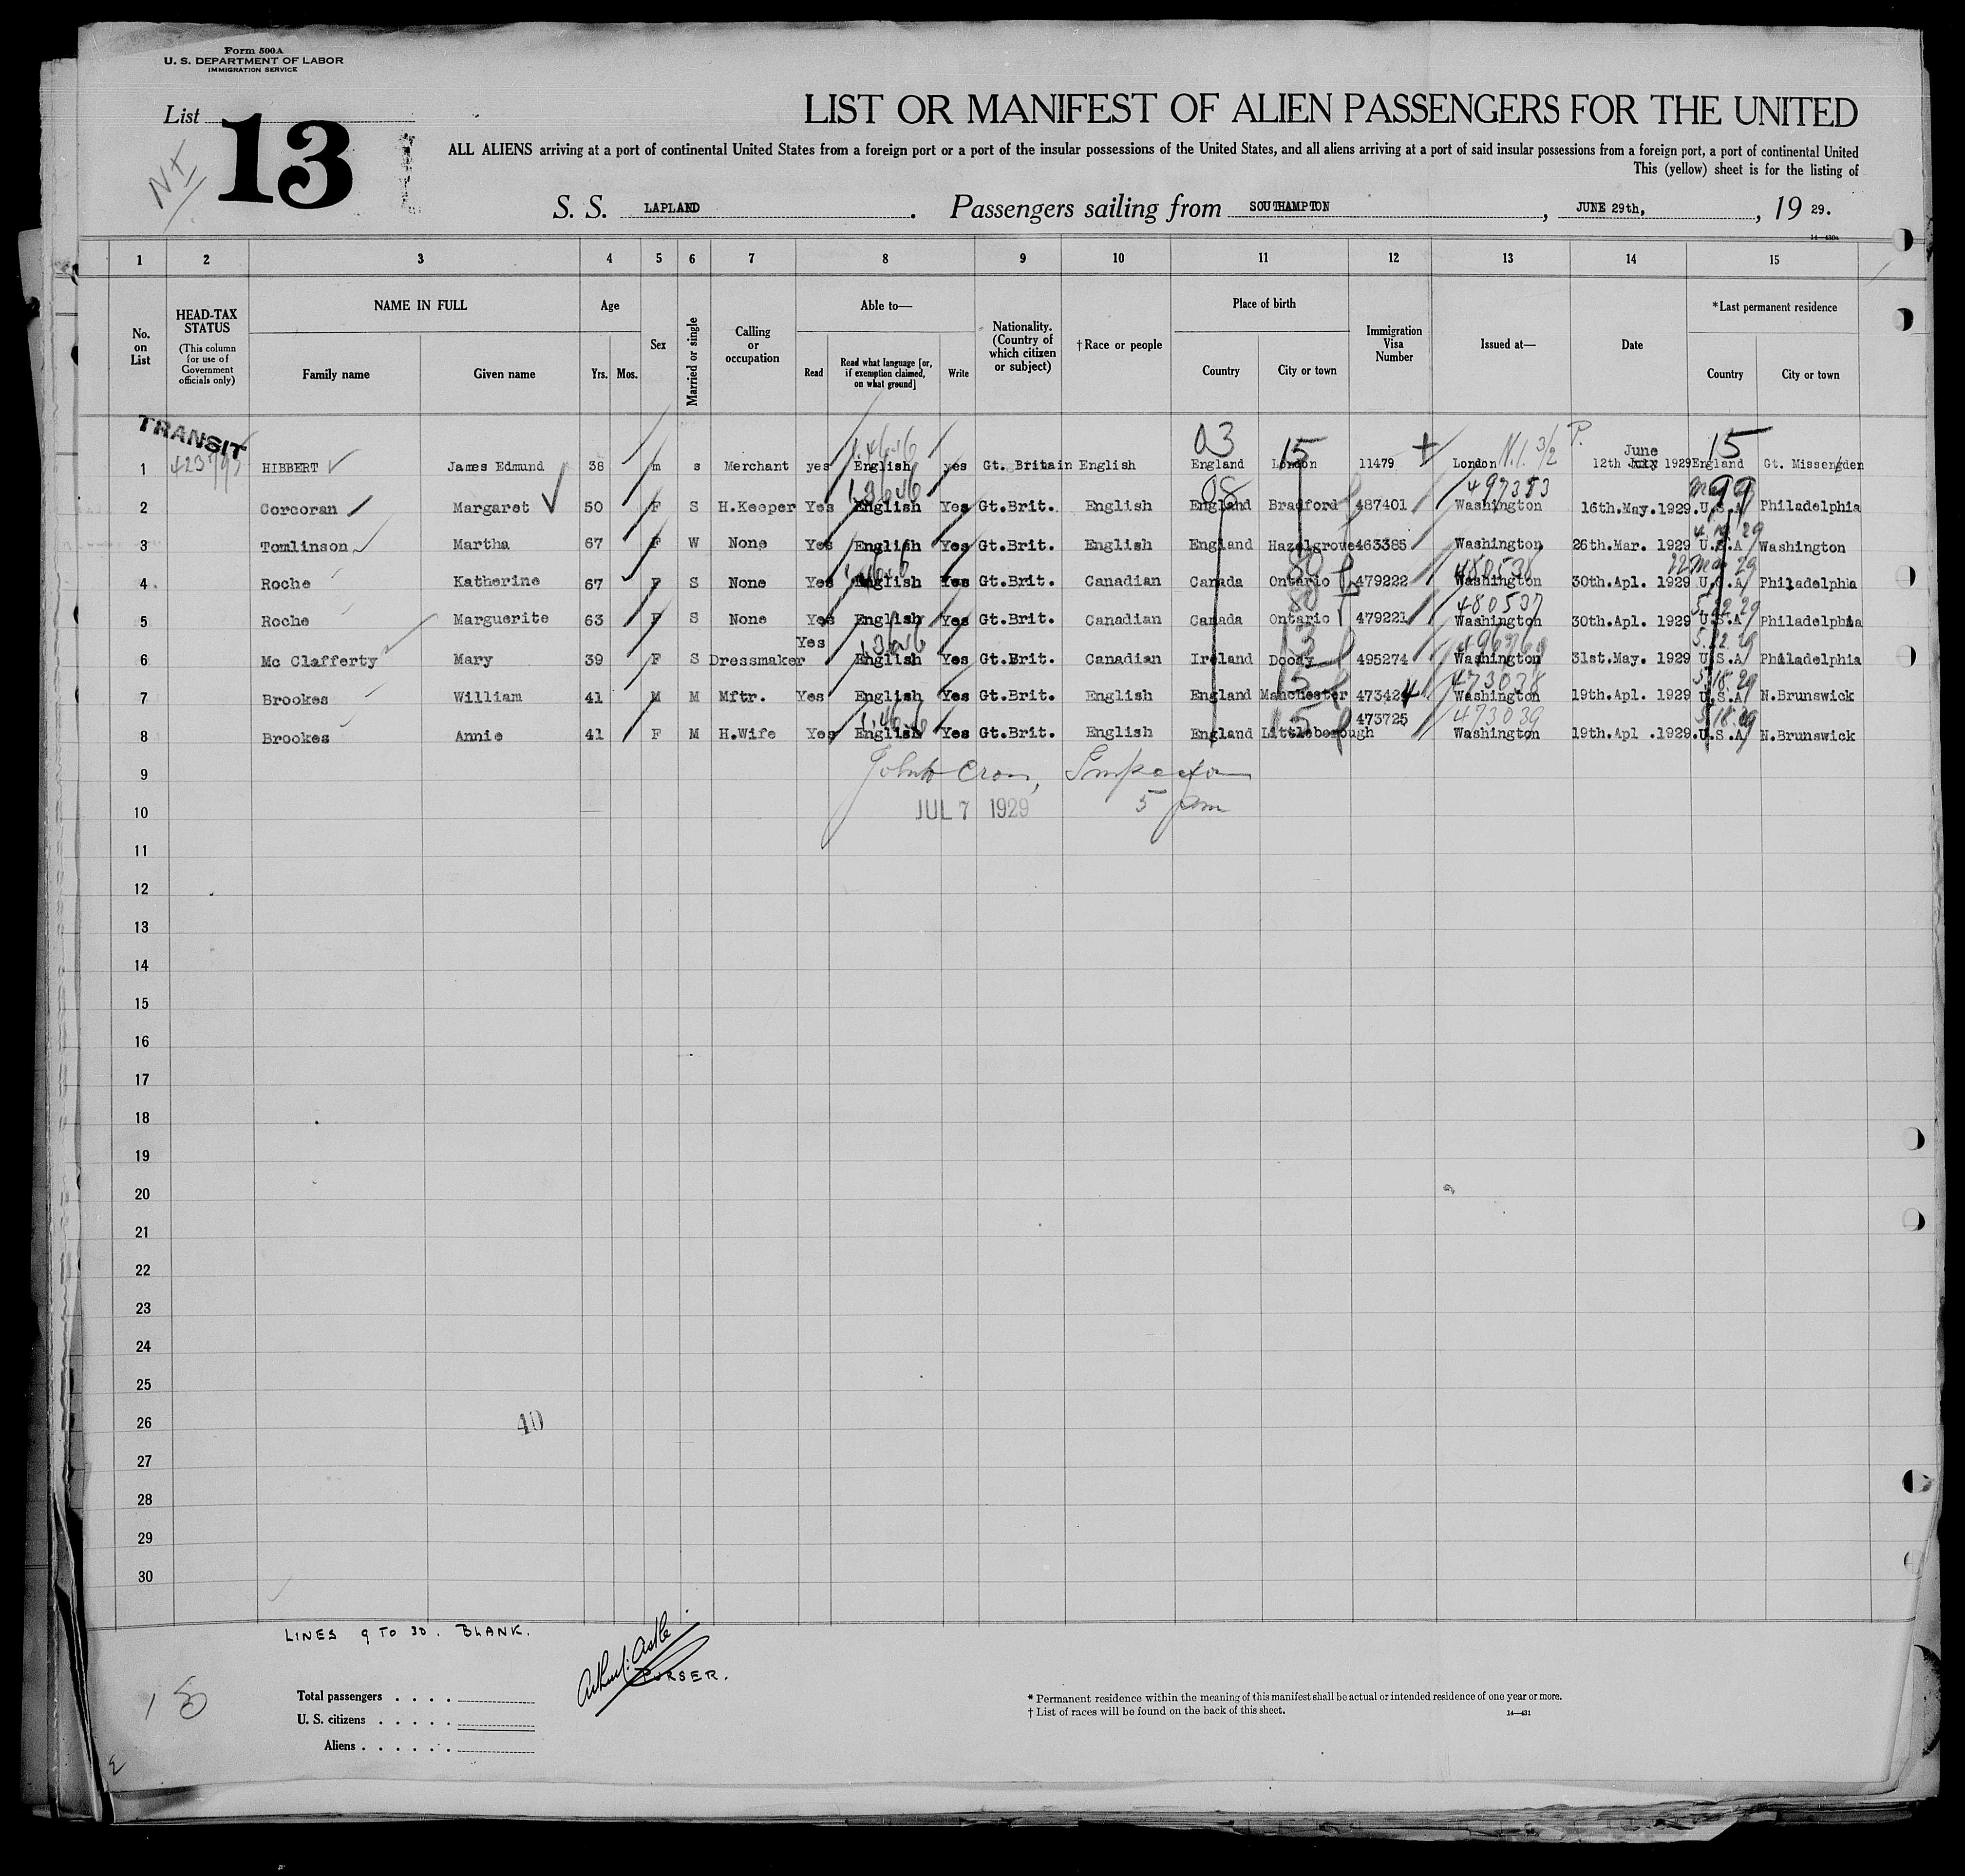 Form 500A
U. S. DEPARTMENT OF LABOR
IMMIGRATION SERVICE
List 13
LIST OR MANIFEST OF ALIEN PASSENGERS FOR THE UNITED
ALL ALIENS arriving at a port of continental United States from a foreign port or a port of the insular possessions of the United States, and all aliens arriving at a port of said insular possessions from a foreign port, a port of continental United
This (yellow) sheet is for the listing of
S. S. LAPLAND . Passengers sailing from SOUTHAMPTON , JUNE 29th, , 19 29.
1 2 3 4 5 6 7 8 9 10 11 12 13 14 15
No. on List
HEAD-TAX STATUS (This column for use of Government officials only)
NAME IN FULL
Family name
Given name
Age
Yrs. Mos.
Sex
Married or single
Calling or occupation
Able to—
Read
Read what language [or, if exemption claimed, on what ground]
Write
Nationality. (Country of which citizen or subject)
†Race or people
Place of birth
Country
City or town
Immigration Visa Number
Issued at—
Date
*Last permanent residence
Country
City or town
TRANSIT
03 15 15
June
1 HIBBERT James Edmund 38 m s Merchant yes English yes Gt. Britain English England London 11479 London 12th July 1929 England Gt. Missengden
08 497353 99
2 Corcoran Margaret 50 F S H.Keeper Yes English Yes Gt.Brit. English England Bradford 487401 Washington 16th.May.1929. U.S.A Philadelphia
3 Tomlinson Martha 67 F W None Yes English Yes Gt.Brit. English England Hazelgrove 463385 Washington 26th.Mar. 1929 U.S.A Washington
4 Roche Katherine 67 F S None Yes English Yes Gt.Brit. Canadian Canada Ontario 479222 Washington 30th.Apl. 1929 U.S.A Philadelphia
480537
5 Roche Marguerite 63 F S None Yes English Yes Gt.Brit. Canadian Canada Ontario 479221 Washington 30th.Apl. 1929 U.S.A Philadelphia
6 Mc Clafferty Mary 39 F S Dressmaker Yes English Yes Gt.Brit. Canadian Ireland Doody 495274 Washington 31st.May. 1929 U.S.A Philadelphia
473038
7 Brookes William 41 M M Mftr. Yes English Yes Gt.Brit. English England Manchester 473424 Washington 19th.Apl. 1929 U.S.A N.Brunswick
473039
8 Brookes Annie 41 F M H.Wife Yes English Yes Gt.Brit. English England Littleborough 473725 Washington 19th.Apl .1929. U.S.A N.Brunswick
9
10 JUL 7 1929 5 pm
11
12
13
14
15
16
17
18
19
20
21
22
23
24
25
26 40
27
28
29
30
LINES 9 TO 30. BLANK.
PURSER.
Total passengers . . . .
U. S. citizens . . . . .
Aliens . . . . . .
* Permanent residence within the meaning of this manifest shall be actual or intended residence of one year or more.
† List of races will be found on the back of this sheet.
14—431